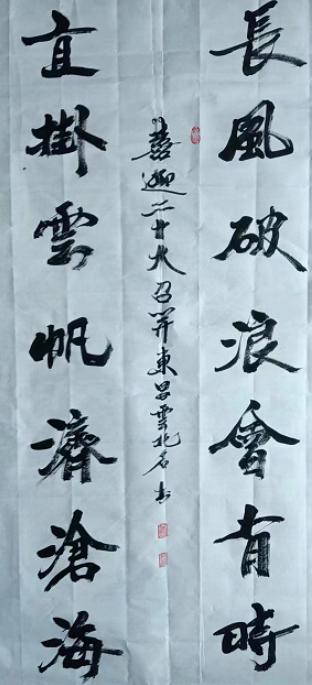 長風破浪會有時
直掛雲帆濟滄海
喜迎二十大召開東昌雲北名書